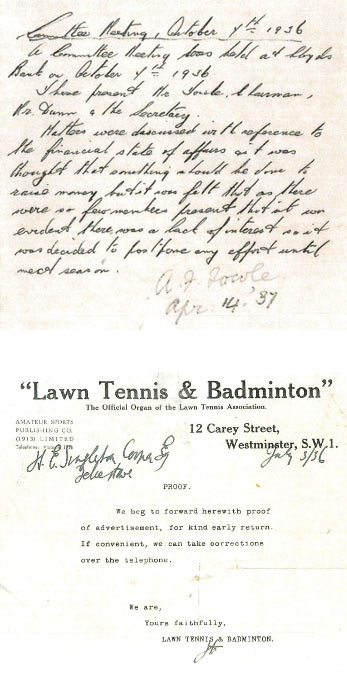 Committee Meeting, October 7th 1936
A Committee Meeting was held at Lloyds
Bank on October 7th 1936
Those present Mr Towle, Chairman,
Mr. Dunn & the Secretary.
Matters were discussed with reference to
the financial state of affairs as it was
thought that something should be done to
raise money but it was felt that as there
were so few members present that it was
evident there was a lack of interest so it
was decided to postpone any effort until
next season.
A. J. Towle
Apr. 14. '37
"Lawn Tennis & Badminton"
The Official Organ of the Lawn Tennis Association.
AMATEUR SPORTS
PUBLISHING CO.
(1913) LIMITED
Telephone:
12 Carey Street,
Westminster, S.W.1.
July 3/36
H. E. Singleton Cooper Esq
Felixstowe
PROOF.
We beg to forward herewith proof
of advertisement, for kind early return.
If convenient, we can take corrections
over the telephone.
We are,
Yours faithfully,
LAWN TENNIS & BADMINTON.